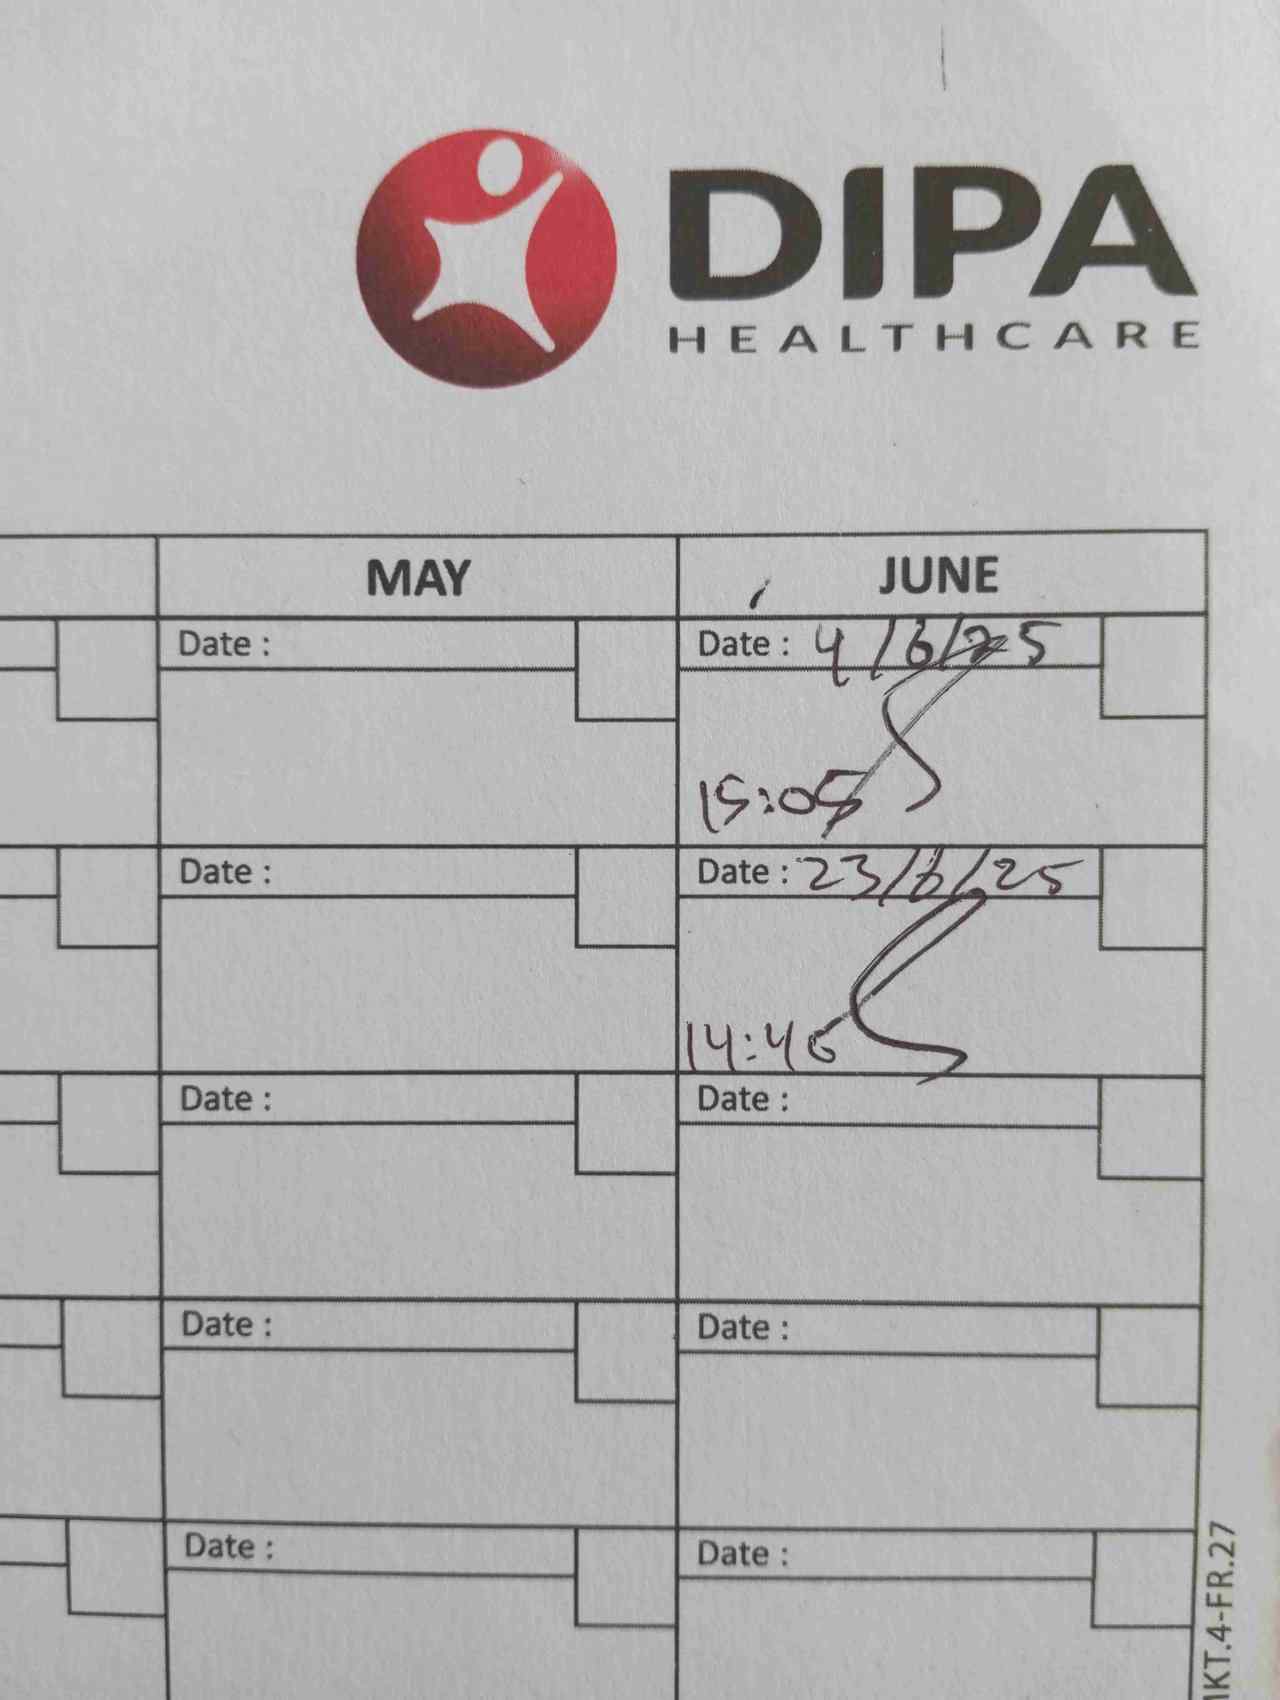 DIPA
HEALTHCARE
MAY JUNE
Date : Date : 4/6/25
15:05
Date : Date : 23/6/25
14:46
Date : Date :
Date : Date :
Date : Date :
IKT.4-FR.27